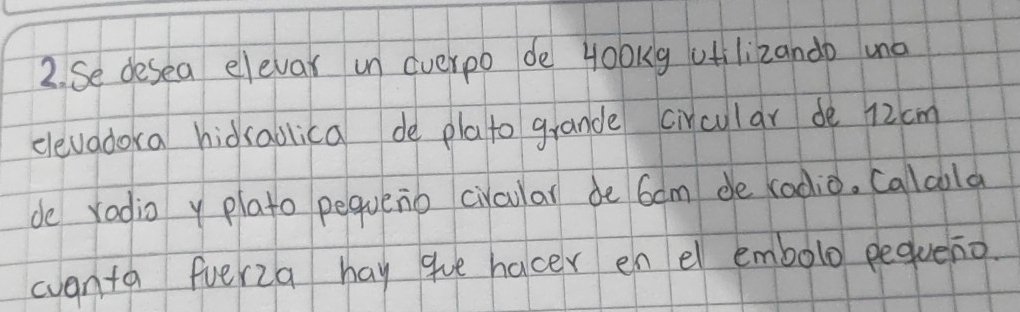 2. Se desea elevar un cuerpo de 400kg utilizando una
elevadora hidraulica de plato grande circular de 12cm
de radio y plato pequeño circular de 6cm de radio. Calcula
cuanta fuerza hay que hacer en el embolo pequeño.